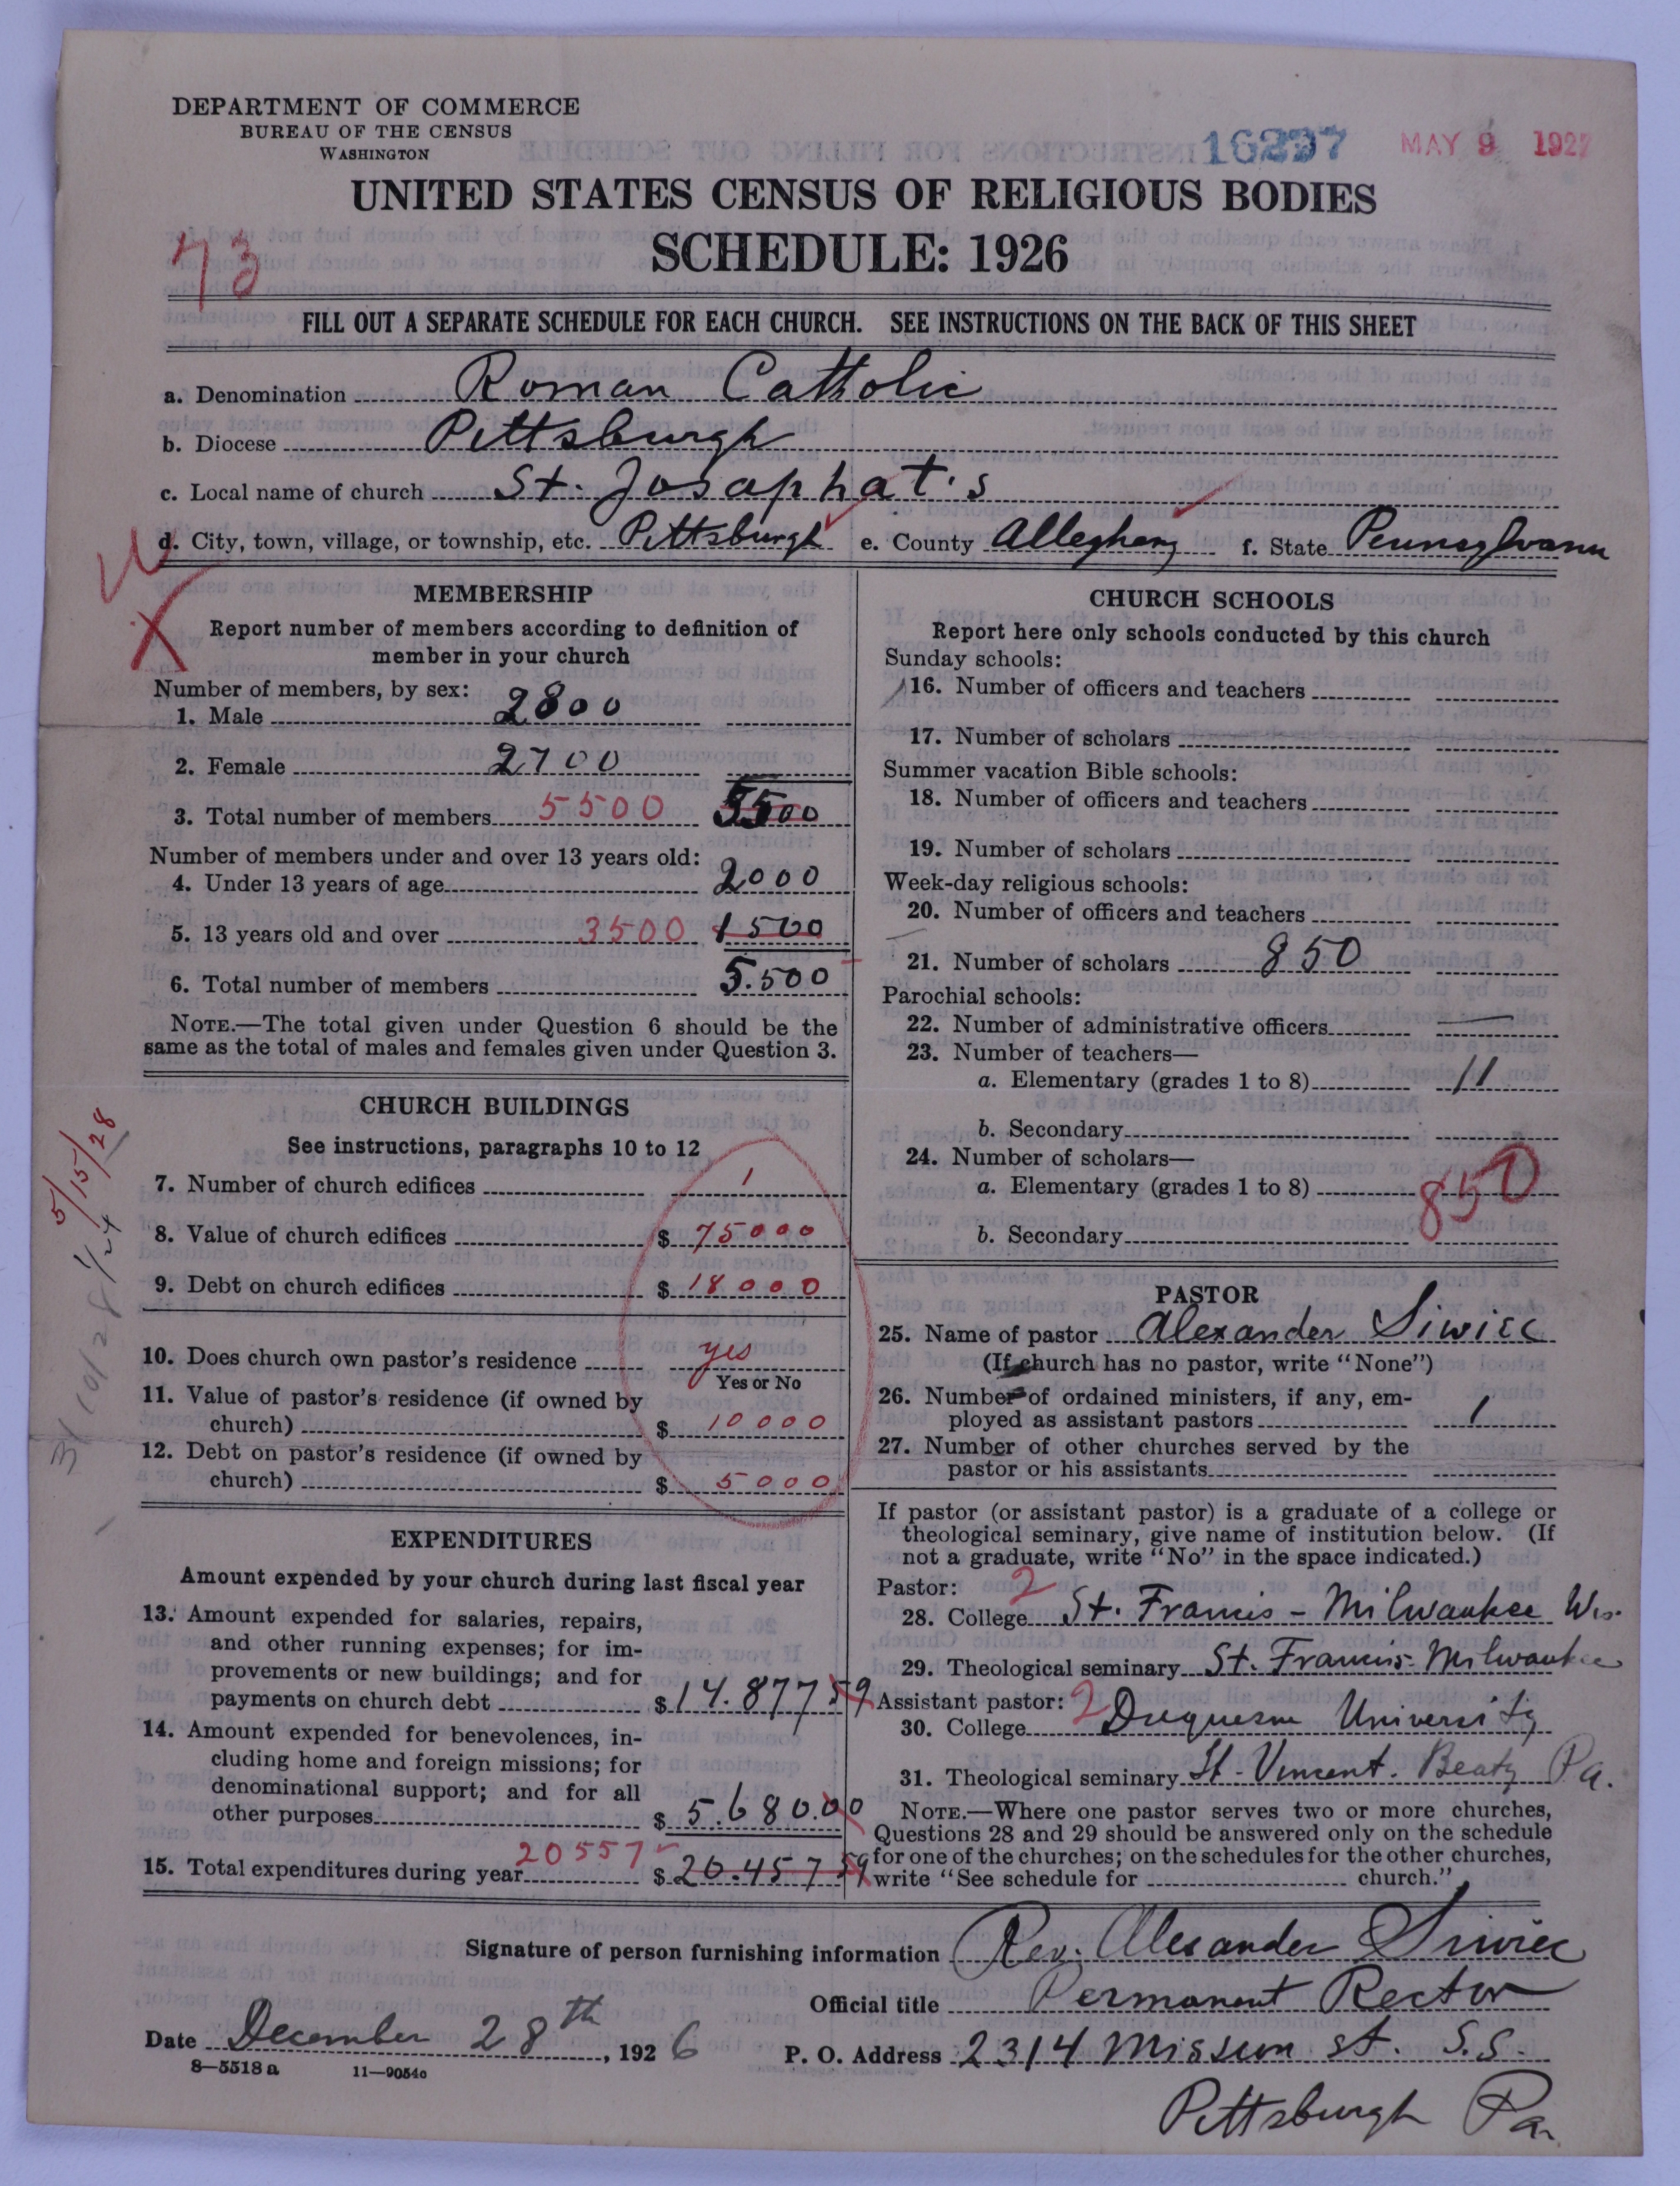 DEPARTMENT OF COMMERCE
BUREAU OF THE CENSUS
WASHINGTON
16297 MAY 9 1927
UNITED STATES CENSUS OF RELIGIOUS BODIES
SCHEDULE: 1926
73
FILL OUT A SEPARATE SCHEDULE FOR EACH CHURCH. SEE INSTRUCTIONS ON THE BACK OF THIS SHEET
a. Denomination Roman Catholic
b. Diocese Pittsburgh
c. Local name of church St. Josaphat's
d. City, town, village, or township, etc. Pittsburgh e. County Allegheny f. State Pennsylvania
MEMBERSHIP
Report number of members according to definition of
member in your church
Number of members, by sex:
1. Male 2800
2. Female 2700
3. Total number of members 5500 5500
Number of members under and over 13 years old:
4. Under 13 years of age 2000
5. 13 years old and over 3500 1500
6. Total number of members 5.500
NOTE.—The total given under Question 6 should be the
same as the total of males and females given under Question 3.
CHURCH BUILDINGS
See instructions, paragraphs 10 to 12
7. Number of church edifices 1
8. Value of church edifices $ 75000
9. Debt on church edifices $ 18000
10. Does church own pastor's residence yes
Yes or No
11. Value of pastor's residence (if owned by
church) $ 10000
12. Debt on pastor's residence (if owned by
church) $ 5000
5/15/28
EXPENDITURES
Amount expended by your church during last fiscal year
13. Amount expended for salaries, repairs,
and other running expenses; for im-
provements or new buildings; and for
payments on church debt $ 14.877 59
14. Amount expended for benevolences, in-
cluding home and foreign missions; for
denominational support; and for all
other purposes $ 5.680.00
15. Total expenditures during year 20557 $ 20.457 59
CHURCH SCHOOLS
Report here only schools conducted by this church
Sunday schools:
16. Number of officers and teachers
17. Number of scholars
Summer vacation Bible schools:
18. Number of officers and teachers
19. Number of scholars
Week-day religious schools:
20. Number of officers and teachers
21. Number of scholars 850
Parochial schools:
22. Number of administrative officers —
23. Number of teachers—
a. Elementary (grades 1 to 8) 11
b. Secondary
24. Number of scholars—
a. Elementary (grades 1 to 8) 850
b. Secondary
PASTOR
25. Name of pastor Alexander Siwiec
(If church has no pastor, write "None")
26. Number of ordained ministers, if any, em-
ployed as assistant pastors 1
27. Number of other churches served by the
pastor or his assistants
If pastor (or assistant pastor) is a graduate of a college or
theological seminary, give name of institution below. (If
not a graduate, write "No" in the space indicated.)
Pastor: 2
28. College St. Francis - Milwaukee Wis.
29. Theological seminary St. Francis- Milwaukee
Assistant pastor: 2
30. College Duquesne University
31. Theological seminary St. Vincent. Beaty Pa.
NOTE.—Where one pastor serves two or more churches,
Questions 28 and 29 should be answered only on the schedule
for one of the churches; on the schedules for the other churches,
write "See schedule for church."
Signature of person furnishing information Rev. Alexander Siwiec
Official title Permanent Rector
Date December 28th, 1926 P. O. Address 2314 Mission St. S.S.
8—5518 a 11—9054c
Pittsburgh Pa.